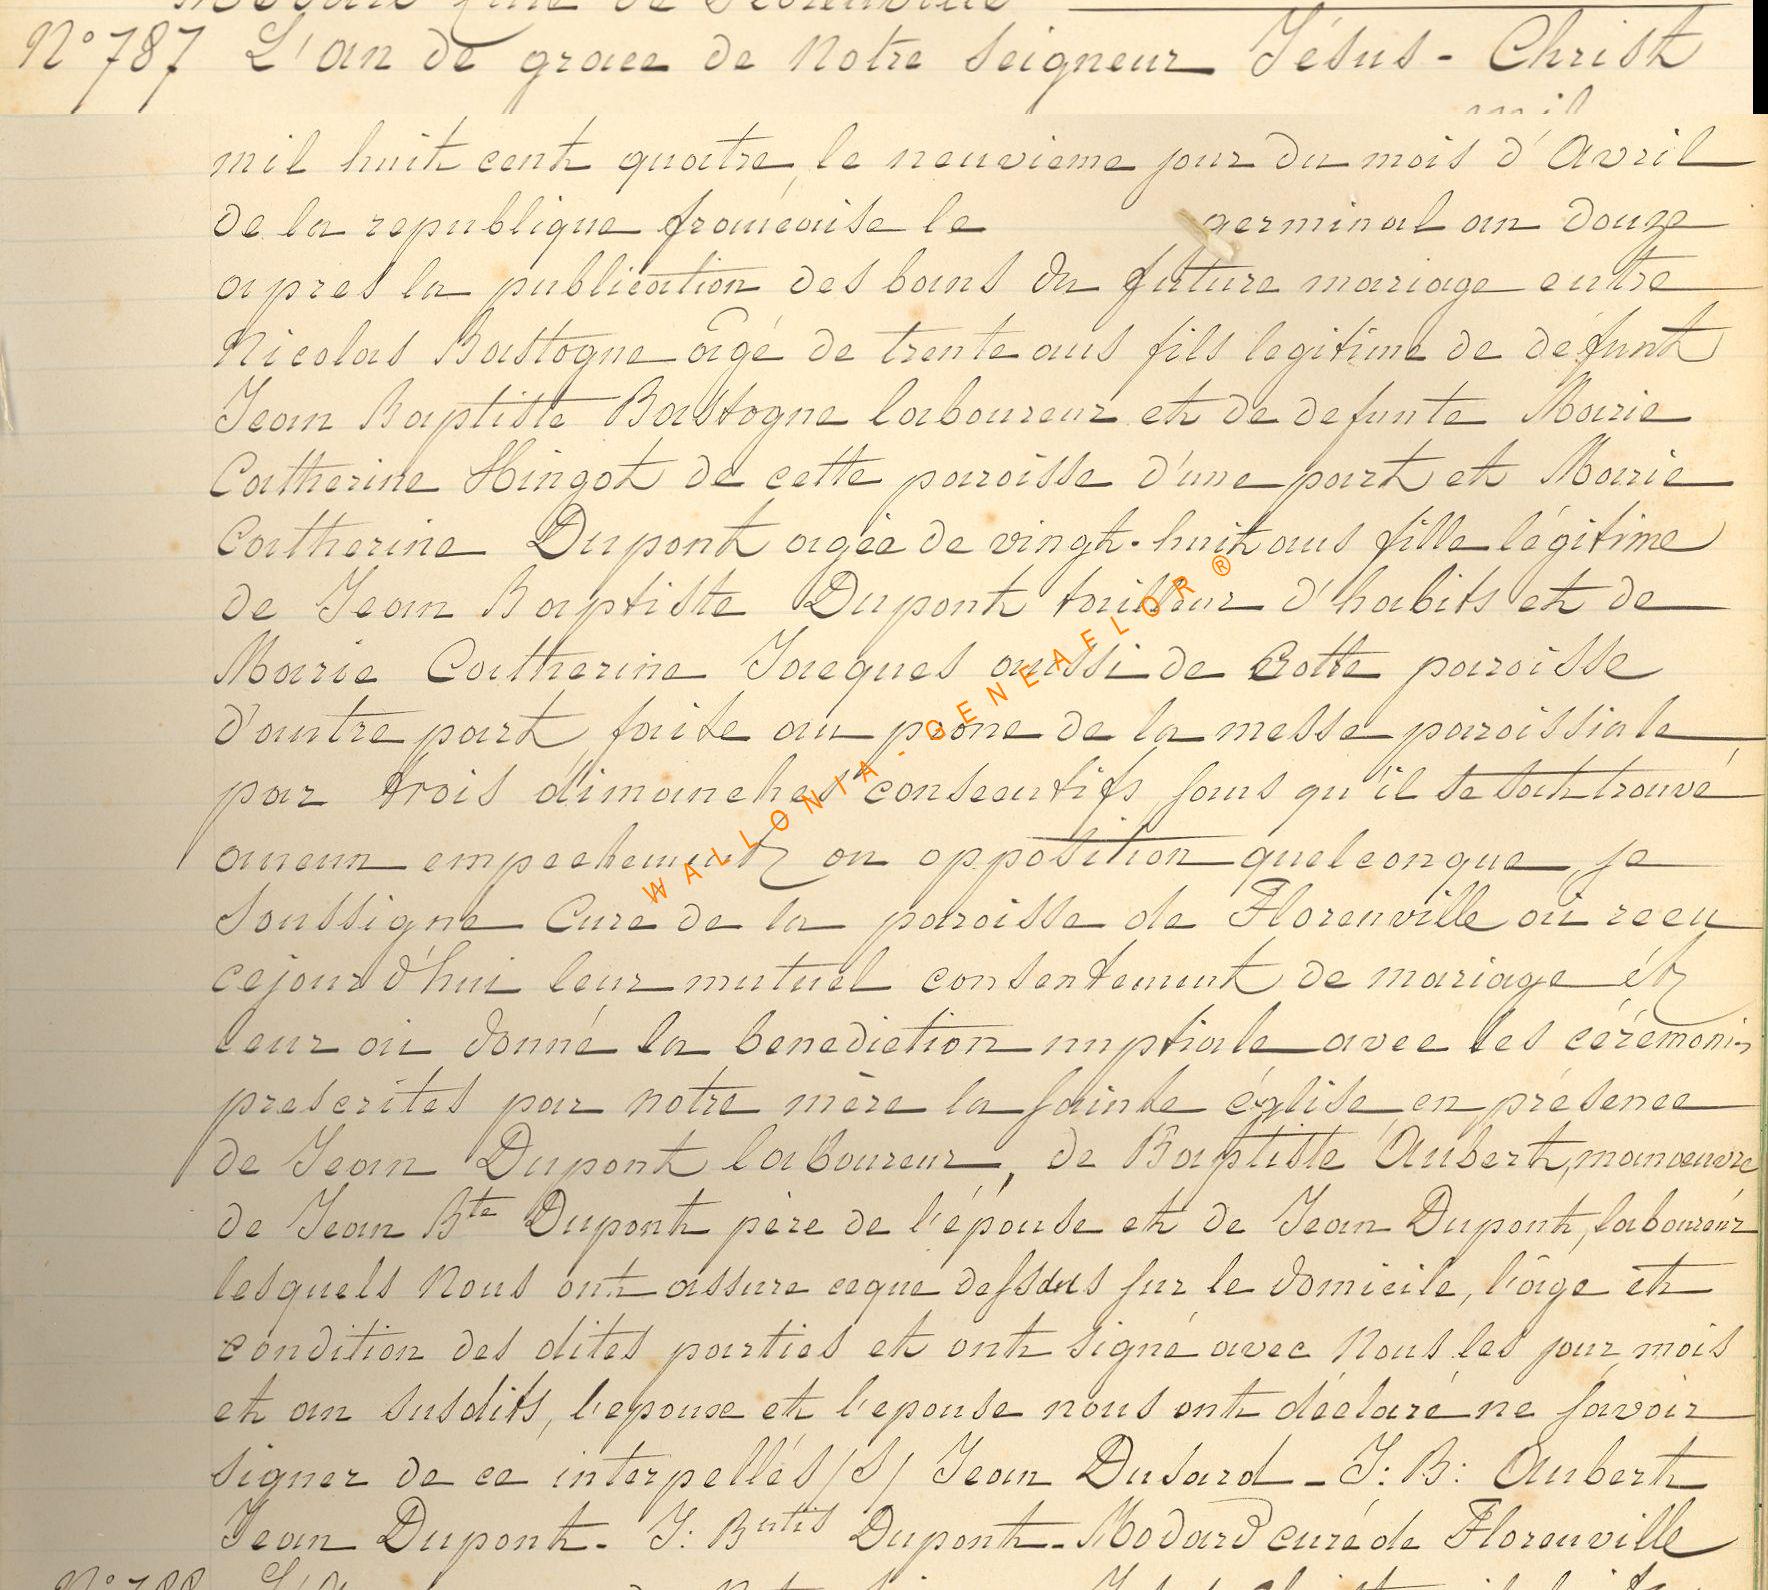 N° 787 L'an de grace de Notre Seigneur Jésus-Christ
mil huit cent quatre, le neuvieme jour du mois d'Avril
de la republique francaise le germinal an douze
apres la publication des bans du future mariage entre
Nicolas Bastogne agé de trente ans fils legitime de défunt
Jean Baptiste Bastogne laboureur et de defunte Marie
Catherine Hingot de cette paroisse d'une part et Marie
Catherine Dupont agée de vingt-huit ans fille légitime
de Jean Baptiste Dupont tailleur d'habits et de
Marie Catherine Jacques aussi de Cette paroisse
d'autre part, faite au prone de la messe paroissiale
par trois dimanches consecutifs sans qu'il se soit trouvé
aucun empechement ou opposition quelconque, je
soussigne Cure de la paroisse de Florenville ai recu
cejourd'hui leur mutuel consentement de mariage ét
leur ai donné la benediction nuptiale avec les cérémoni
prescrites par notre mère la sainte église, en présence
de Jean Dupont laboureur, de Baptiste Aubert, manoeuvre
de Jean Bte Dupont père de l'épouse et de Jean Dupont, laboureur
lesquels Nous ont assure ceque dessus sur le domicile, l'âge et
condition des dites parties et ont signé avec Nous les jour, mois
et an susdits, l'epoux et l'epouse nous ont déclaré ne savoir
signer de ce interpellés /S/ Jean Dusard - J: B: Aubert
Jean Dupont - J: Batis Dupont - Modard curé de Florenville
WALLONIA - GENEAFLOR ®